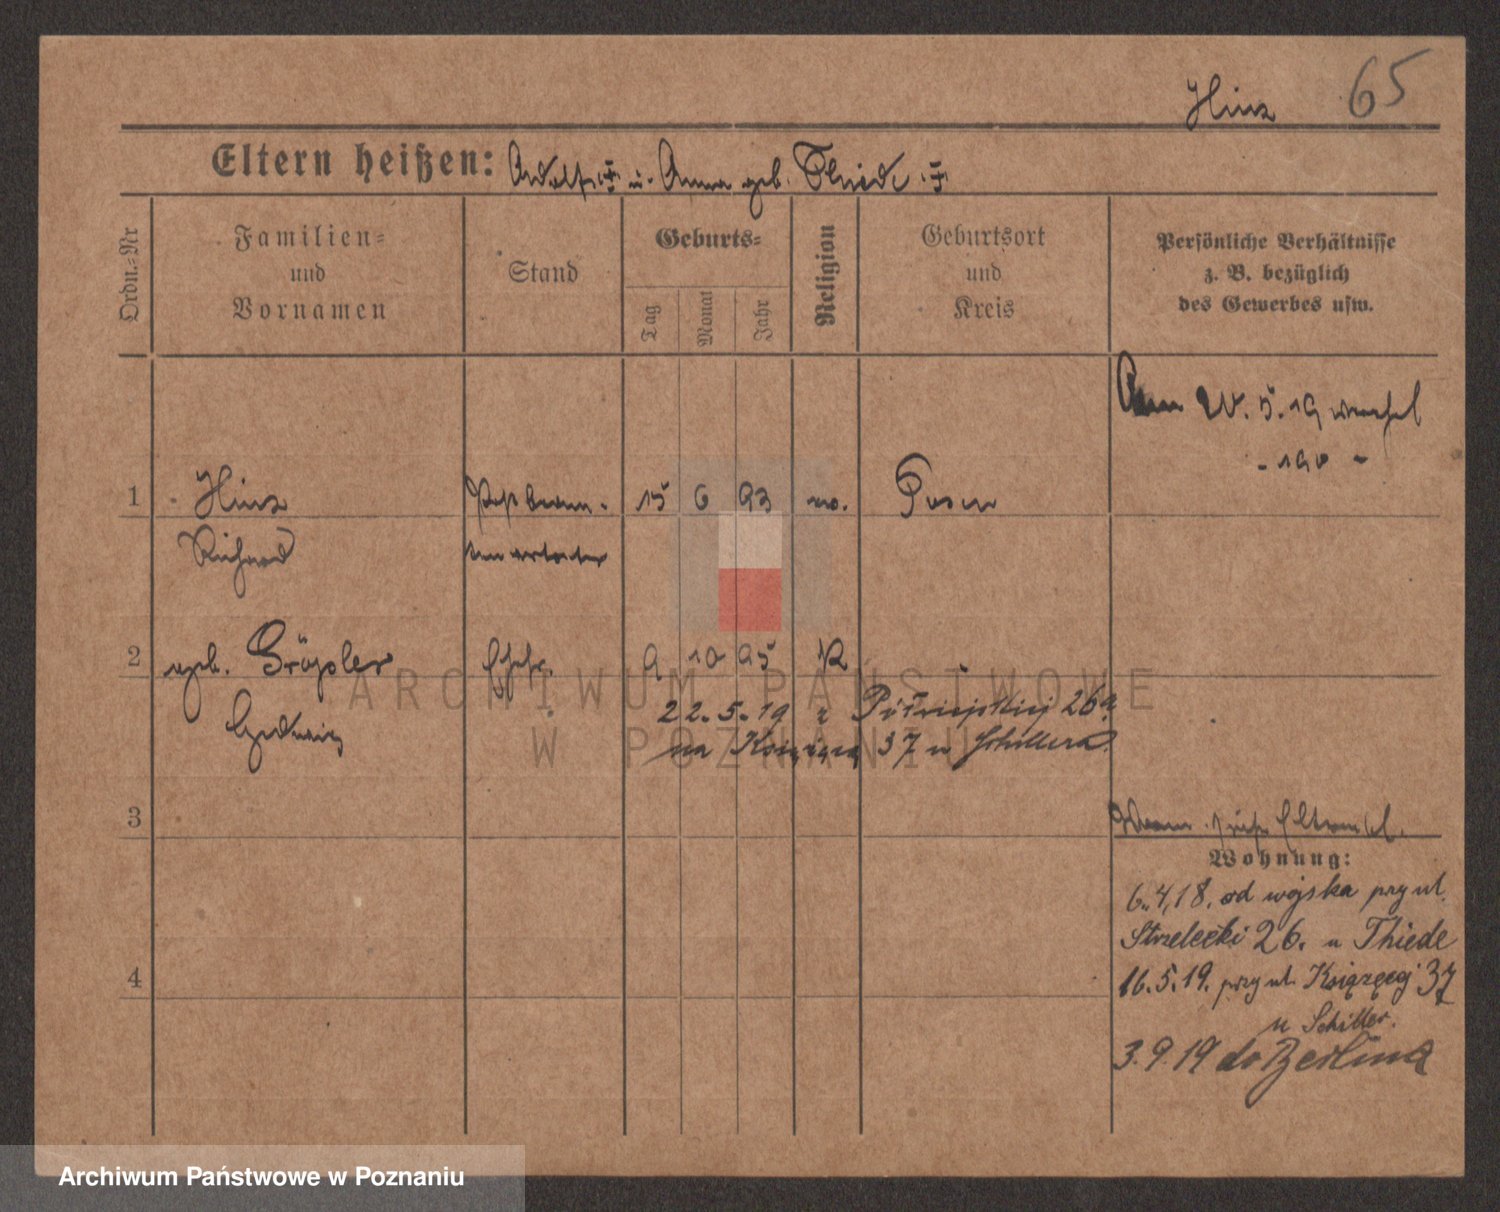 Hinz 65
Eltern heißen: Adolf u. Anna geb. Thiede
Ordn.-Nr
Familien-
und
Vornamen
Stand
Geburts-
Tag
Monat
Jahr
Religion
Geburtsort
und
Kreis
Persönliche Verhältnisse
z. B. bezüglich
des Gewerbes usw.
5. 19
1 Hinz 15 6 93 Posen
Richard
2 geb. 9 10 95 K
Hedwig
22. 5. 19 z Półwiejskiej 26a
na Książęcą 37 u Schillera
3
Wohnung:
6. 4. 18. od wojska przy ul.
Strzelecki 26. u Thiede
16. 5. 19. przy ul. Książęcej 37
u Schiller.
3. 9. 19 do Berlina
4
ARCHIWUM PAŃSTWOWE
W POZNANIU
Archiwum Państwowe w Poznaniu